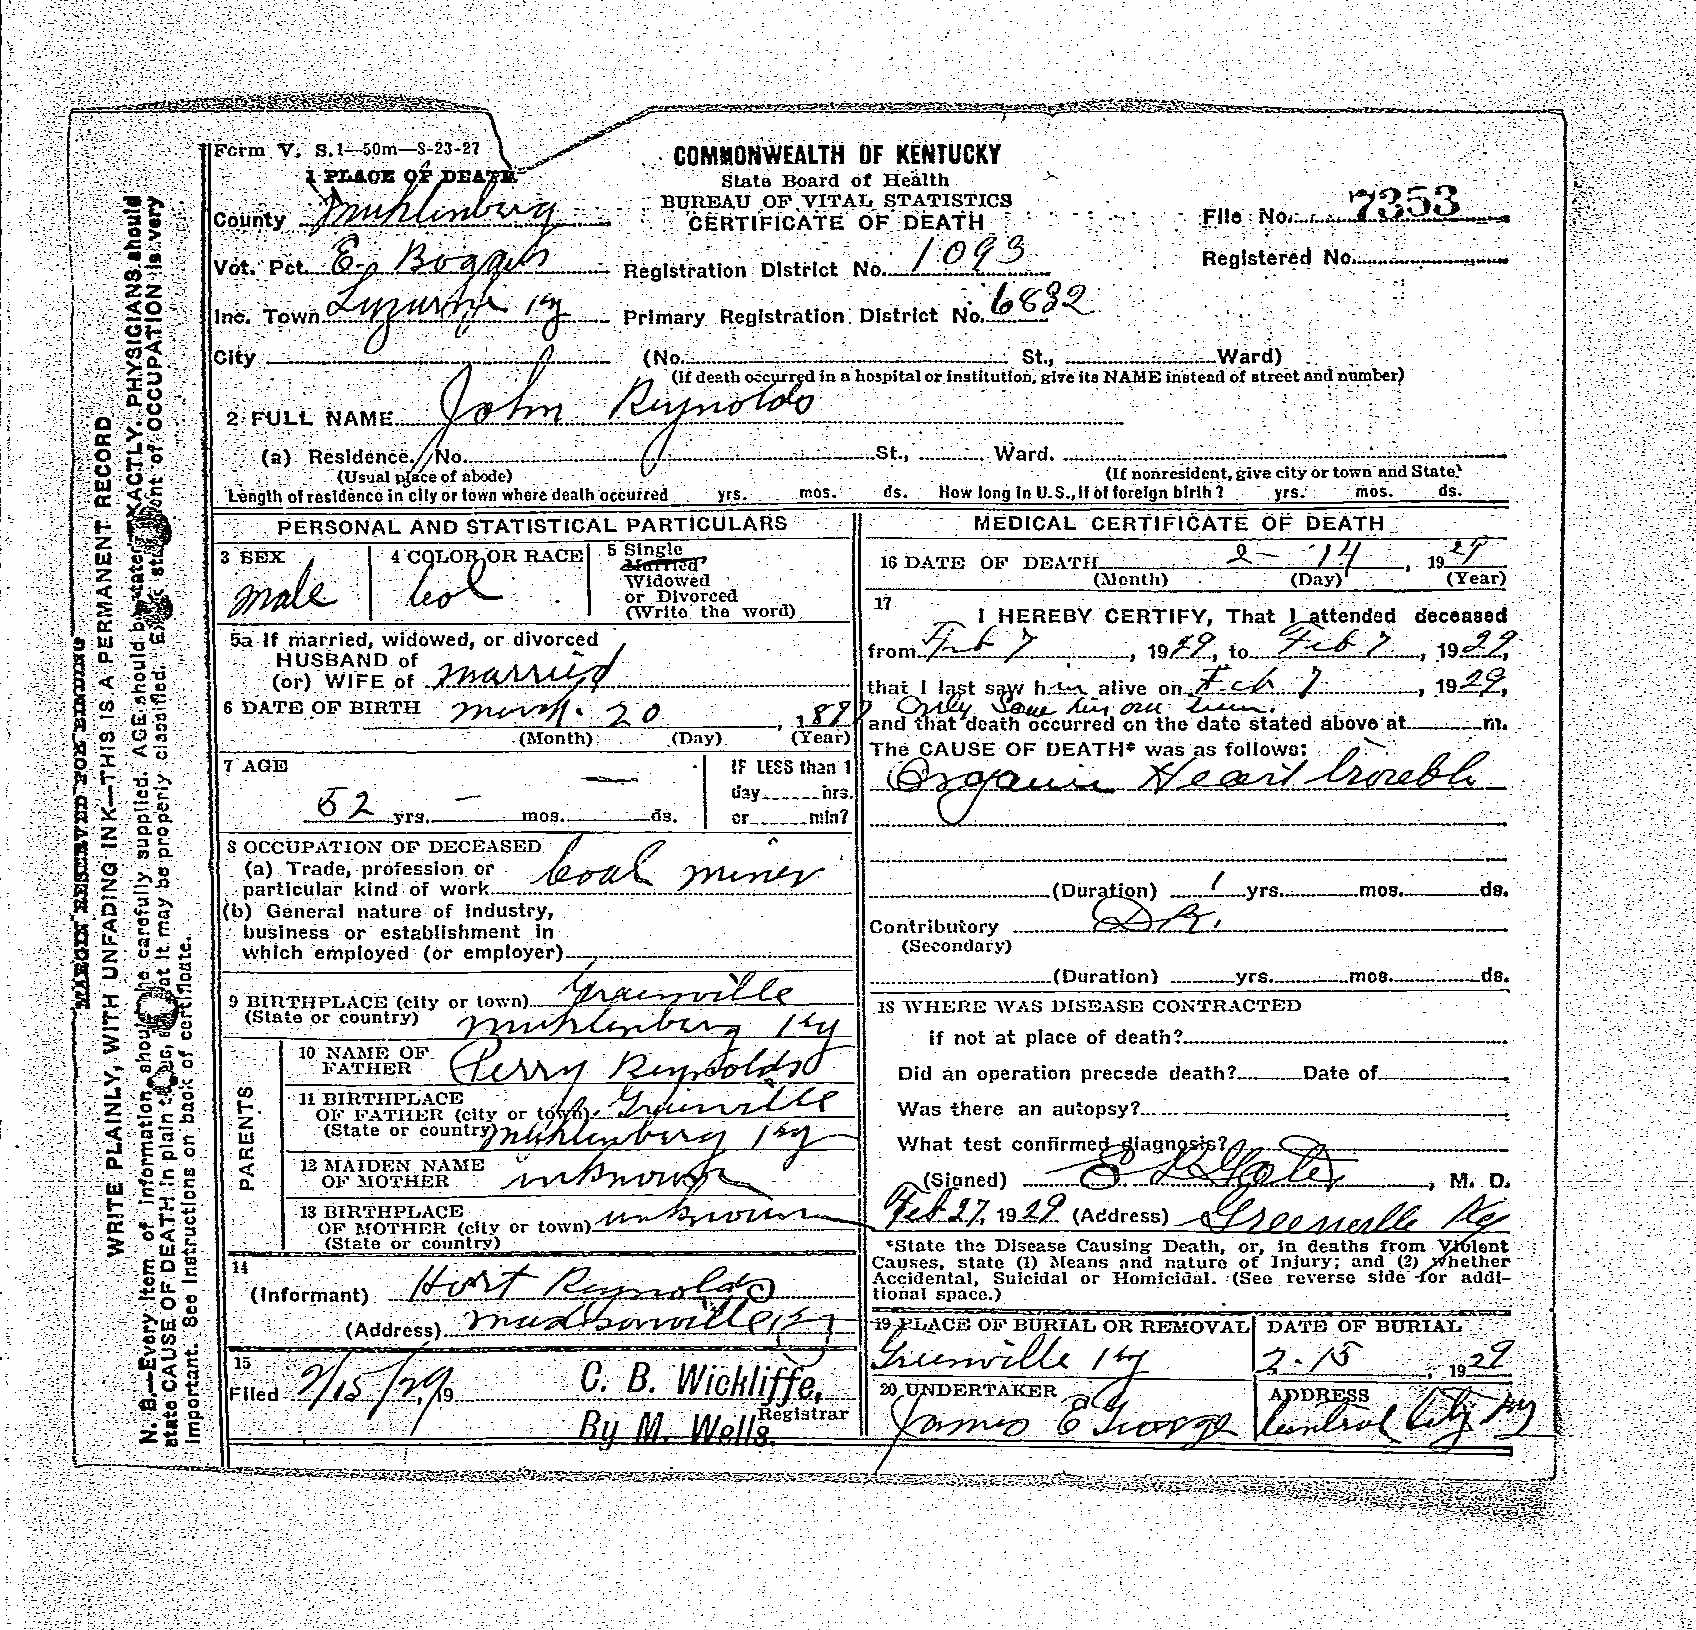 Form V. S.1—50m—8-23-27
COMMONWEALTH OF KENTUCKY
State Board of Health
BUREAU OF VITAL STATISTICS
CERTIFICATE OF DEATH
1 PLACE OF DEATH
County Muhlenberg
Vot. Pct. E.
Inc. Town Ky
City
File No. 7353
Registered No.
Registration District No. 1093
Primary Registration District No. 6832
(No. St., Ward)
(If death occurred in a hospital or institution, give its NAME instead of street and number)
2 FULL NAME John Reynolds
(a) Residence. No. St., Ward.
(Usual place of abode) (If nonresident, give city or town and State)
Length of residence in city or town where death occurred yrs. mos. ds. How long in U.S., if of foreign birth? yrs. mos. ds.
PERSONAL AND STATISTICAL PARTICULARS
3 SEX
male
4 COLOR OR RACE
Col
5 Single
Married
Widowed
or Divorced
(Write the word)
5a If married, widowed, or divorced
HUSBAND of
(or) WIFE of married
6 DATE OF BIRTH March 20, 187
(Month) (Day) (Year)
7 AGE
52 yrs. — mos. — ds.
IF LESS than 1
day hrs.
or min?
8 OCCUPATION OF DECEASED
(a) Trade, profession or
particular kind of work Coal miner
(b) General nature of Industry,
business or establishment in
which employed (or employer)
9 BIRTHPLACE (city or town) Greenville
(State or country) Muhlenberg Ky
PARENTS
10 NAME OF
FATHER Perry Reynolds
11 BIRTHPLACE
OF FATHER (city or town) Greenville
(State or country) Muhlenberg Ky
12 MAIDEN NAME
OF MOTHER unknown
13 BIRTHPLACE
OF MOTHER (city or town) unknown
(State or country)
14
(Informant) Hort Reynolds
(Address) Madisonville Ky
15
Filed 2/15/29 19
C. B. Wickliffe,
Registrar
By M. Wells.
MEDICAL CERTIFICATE OF DEATH
16 DATE OF DEATH 2 - 14, 1929
(Month) (Day) (Year)
17
I HEREBY CERTIFY, That I attended deceased
from Feb 7, 1929, to Feb 7, 1929,
that I last saw him alive on Feb 7, 1929,
Only saw him one time.
and that death occurred on the date stated above at m.
The CAUSE OF DEATH* was as follows:
Organic Heart trouble
(Duration) 1 yrs. mos. ds.
Contributory D.K.
(Secondary)
(Duration) yrs. mos. ds.
18 WHERE WAS DISEASE CONTRACTED
if not at place of death?
Did an operation precede death? Date of
Was there an autopsy?
What test confirmed diagnosis?
(Signed) , M. D.
Feb 27, 1929 (Address) Greenville Ky
*State the Disease Causing Death, or, in deaths from Violent
Causes, state (1) Means and nature of Injury; and (2) whether
Accidental, Suicidal or Homicidal. (See reverse side for addi-
tional space.)
19 PLACE OF BURIAL OR REMOVAL
Greenville Ky
DATE OF BURIAL
2-15, 1929
20 UNDERTAKER
James E George
ADDRESS
Central City Ky
MARGIN RESERVED FOR BINDING
WRITE PLAINLY, WITH UNFADING INK—THIS IS A PERMANENT RECORD
N. B.—Every item of information should be carefully supplied. AGE should be stated EXACTLY. PHYSICIANS should
state CAUSE OF DEATH in plain terms, so that it may be properly classified. Exact statement of OCCUPATION is very
important. See instructions on back of certificate.